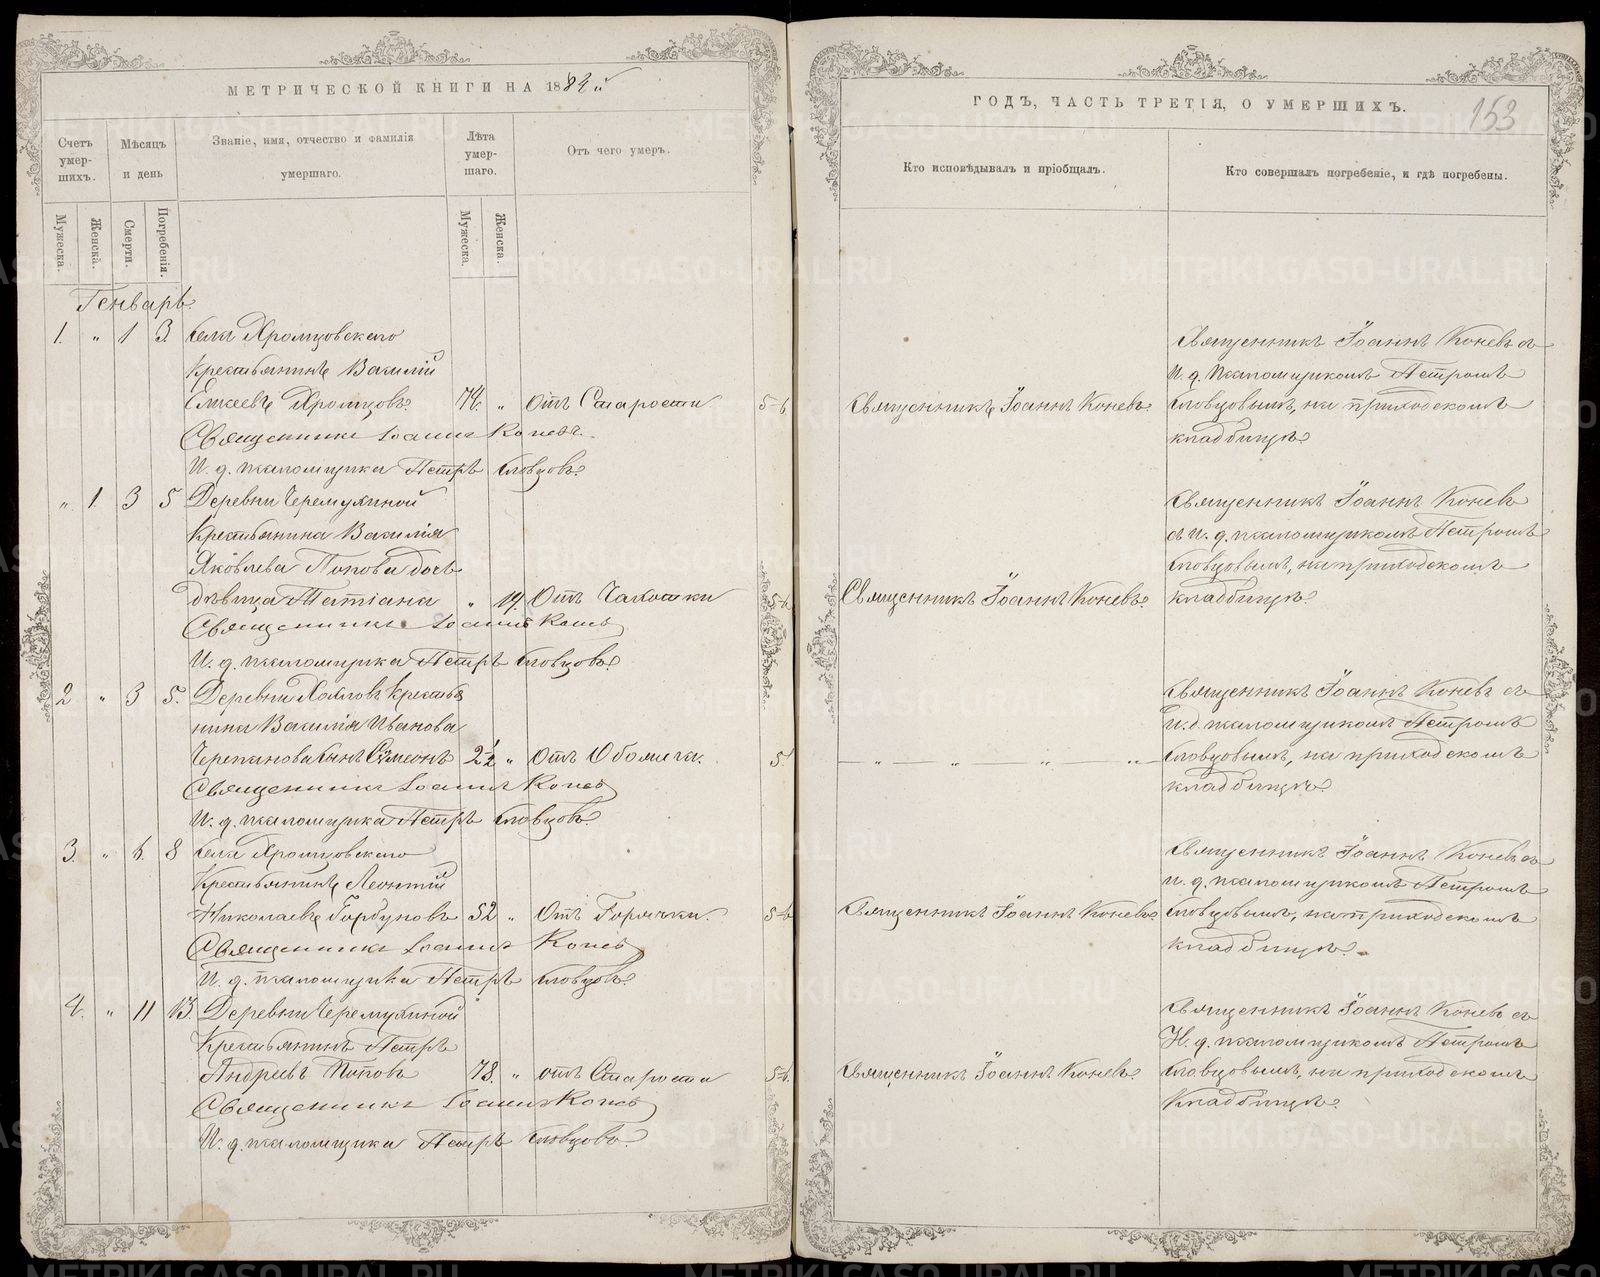 МЕТРИЧЕСКОЙ КНИГИ НА 1884й
Счетъ умер-шихъ.
Мѣсяцъ и день
Званіе, имя, отчество и фамилія умершаго.
Лѣта умер-шаго.
Отъ чего умеръ.
Мужеска.
Женска.
Смерти.
Погребенія.
Мужеска.
Женска.
Генварь.
1. " 1 3 Села Хромцовскаго
Крестьянинъ Василій
Хромцовъ. 74. " Отъ Старости
Священникъ Іоаннъ Коневъ.
И. д. псаломщика Петръ Словцовъ.
" 1. 3 5 Деревни Черемухиной
Крестьянина Василія
Яковлева Попова дочь
дѣвица Татіана " 19. Отъ Чахотки
Священникъ Іоаннъ Коневъ
И. д. псаломщика Петръ Словцовъ.
2 " 3 5. Деревни крестья
нина Василія Иванова
Черепанова сынъ Симеонъ 2½ " Отъ
Священникъ Іоаннъ Коневъ
И. д. псаломщика Петръ Словцовъ.
3. " 6. 8 Села Хромцовскаго
Крестьянинъ Леонтій
Николаевъ Горбуновъ 52 " Отъ Горячки.
Священникъ Іоаннъ Коневъ
И. д. псаломщика Петръ Словцовъ.
4. " 11 13 Деревни Черемухиной
Крестьянинъ Петръ
Андреевъ Поповъ 78. " отъ Старости
Священникъ Іоаннъ Коневъ
И. д. псаломщика Петръ Словцовъ.
ГОДЪ, ЧАСТЬ ТРЕТІЯ, О УМЕРШИХЪ.
153
Кто исповѣдывалъ и пріобщалъ.
Кто совершалъ погребеніе, и гдѣ погребены.
Священникъ Іоаннъ Коневъ съ
И. д. псаломщикомъ Петромъ
Священникъ Іоаннъ Коневъ. Словцовымъ, на приходскомъ
кладбищѣ.
Священникъ Іоаннъ Коневъ
съ и. д. псаломщикомъ Петромъ
Словцовымъ, на приходскомъ
Священникъ Іоаннъ Коневъ. кладбищѣ.
Священникъ Іоаннъ Коневъ съ
и. д. псаломщикомъ Петромъ
— " — " — " — " — Словцовымъ, на приходскомъ
кладбищѣ.
Священникъ Іоаннъ Коневъ съ
и. д. псаломщикомъ Петромъ
Священникъ Іоаннъ Коневъ. Словцовымъ, на приходскомъ
кладбищѣ.
Священникъ Іоаннъ Коневъ съ
И. д. псаломщикомъ Петромъ
Священникъ Іоаннъ Коневъ. Словцовымъ, на приходскомъ
Кладбищѣ.
METRIKI.GASO-URAL.RU